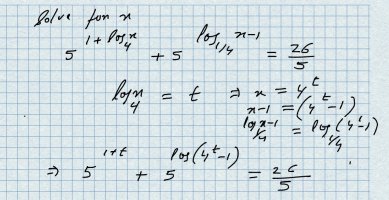 Solve for x
5^(1+log_4 x) + 5^(log_{1/4} x-1) = 26/5
log_4 x = t ⇒ x = 4^t
x-1 = (4^t-1)
log_{1/4} x-1 = log_{1/4}(4^t-1)
⇒ 5^(1+t) + 5^(log(4^t-1)) = 26/5